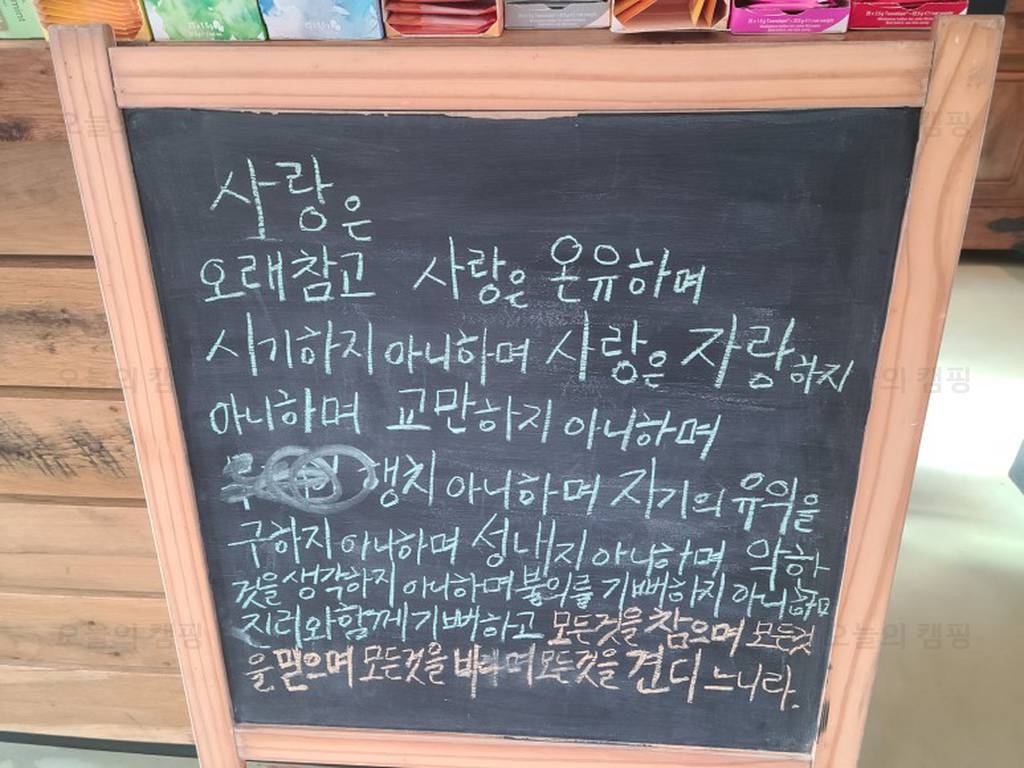 사랑은
오래참고 사랑은 온유하며
시기하지 아니하며 사랑은 자랑하지
아니하며 교만하지 아니하며
행치 아니하며 자기의 유익을
구하지 아니하며 성내지 아니하며 악한
것을 생각하지 아니하며 불의를 기뻐하지 아니하고
진리와함께 기뻐하고 모든것을 참으며 모든것
을 믿으며 모든것을 바라며 모든것을 견디느니라.
오늘의 캠핑